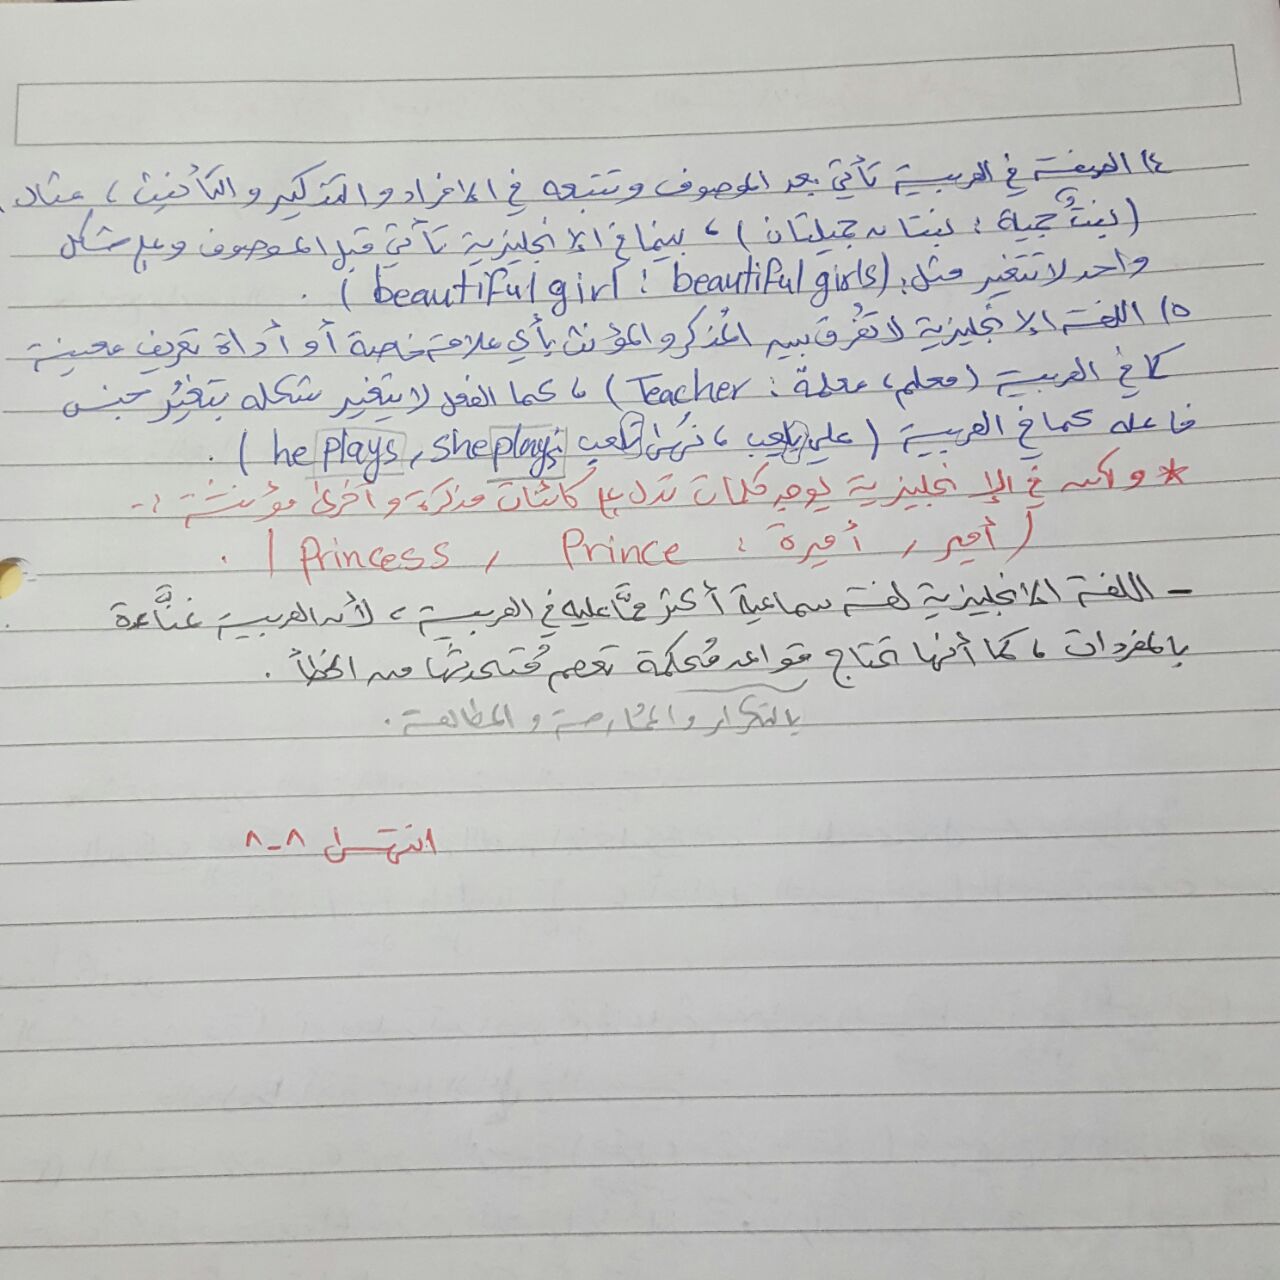 ١٤) الصفة في العربية تأتي بعد الموصوف وتتبعه في الإفراد والتذكير والتأنيث، مثال:
(بنتٌ جميلة : بنتان جميلتان)، بينما في الإنجليزية تأتي قبل الموصوف وعلى شكل
واحد لا تتغير مثل: (beautiful girl : beautiful girls).
١٥) اللغة الإنجليزية لا تُفرق بين المُذكر والمؤنث بأي علامة خاصة أو أداة تعريف معينة
كما في العربية (معلم، معلمة : Teacher)، كما الفعل لا يتغير شكله بتغيُّر جنس
فاعله كما في العربية (علي يلعب، نهى تلعب : he plays, she plays).
* ولكن في الإنجليزية يوجد كلمات تدل على كائنات مذكرة وأخرى مؤنثة :-
(أمير, أميرة : Prince , Princess).
- اللغة الإنجليزية لغة سماعية أكثر ممَّا عليه في العربية، لأن العربية غنَّاءة
بالمفردات، كما أنها تحتاج قواعد مُحكمة تعصم مُتحدثها من الخطأ.
بالتكرار والممارسة والمطالعة.
انتهى ٨-٨